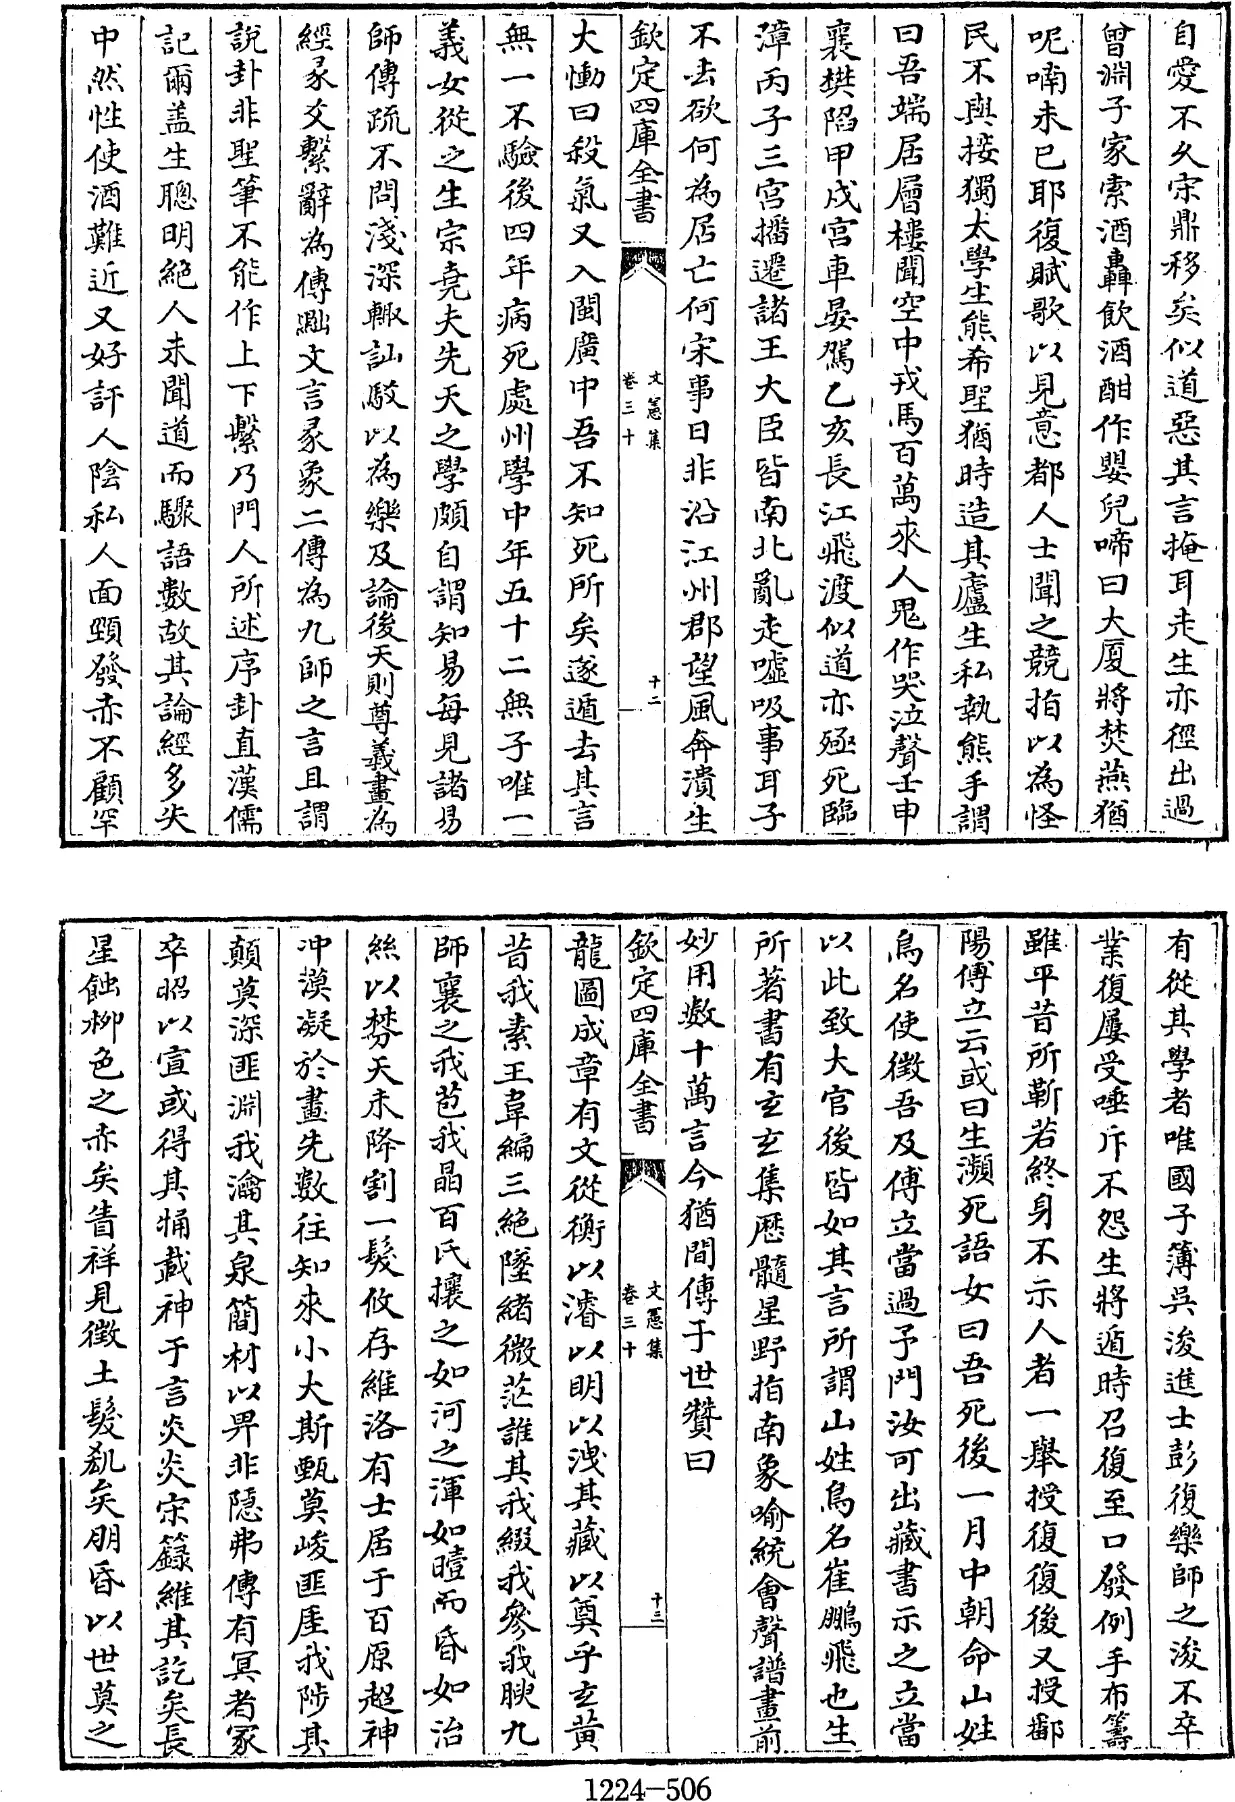 自愛不久宋鼎移矣似道惡其言掩耳走生亦徑出過
曾淵子家索酒轟飲酒酣作嬰兒啼曰大厦將焚燕猶
呢喃未已耶復賦歌以見意都人士聞之競指以為怪
民不與接獨太學生熊希聖猶時造其廬生私執熊手謂
曰吾端居層樓聞空中戎馬百萬來人鬼作哭泣聲壬申
襄樊陷甲戌宮車晏駕乙亥長江飛渡似道亦殛死臨
漳丙子三宮播遷諸王大臣皆南北亂走嘘吸事耳子
不去欲何為居亡何宋事日非沿江州郡望風奔潰生
欽定四庫全書
文憲集
卷三十
十二
大慟曰殺氣又入閩廣中吾不知死所矣遂遁去其言
無一不驗後四年病死處州學中年五十二無子唯一
義女從之生宗堯夫先天之學頗自謂知易每見諸易
師傳疏不問淺深輙訕駁以為樂及論後天則尊義畫為
經彖爻繫辭為傳黜文言彖象二傳為九師之言且謂
說卦非聖筆不能作上下繫乃門人所述序卦直漢儒
記爾盖生聰明絶人未聞道而驟語數故其論經多失
中然性使酒難近又好訐人陰私人面頸發赤不顧罕
有從其學者唯國子簿吳浚進士彭復樂師之浚不卒
業復屢受唾斥不怨生將遁時召復至口發例手布籌
雖平昔所靳若終身不示人者一舉授復復後又授鄱
陽傅立云或曰生瀕死語女曰吾死後一月中朝命山姓
鳥名使徵吾及傅立當過予門汝可出藏書示之立當
以此致大官後皆如其言所謂山姓鳥名崔鵬飛也生
所著書有玄玄集歷髓星野指南象喻統會聲譜畫前
妙用數十萬言今猶間傳于世贊曰
欽定四庫全書
文憲集
卷三十
十三
龍圖成章有文從衡以濬以明以洩其藏以奠乎玄黄
昔我素王韋編三絶墜緒微茫誰其我綴我參我腴九
師襄之我苞我晶百氏攘之如河之渾如曀而昏如治
絲以棼天未降割一髮攸存維洛有士居于百原超神
冲漠凝於畫先數往知來小大斯甄莫峻匪厓我陟其
顛莫深匪淵我瀹其泉簡材以畀非隱弗傳有冥者冢
卒昭以宣或得其牖載神于言炎炎宋籙維其訖矣長
星蝕栁色之赤矣眚祥見徵土髮剎矣朋昏以世莫之
1224-506